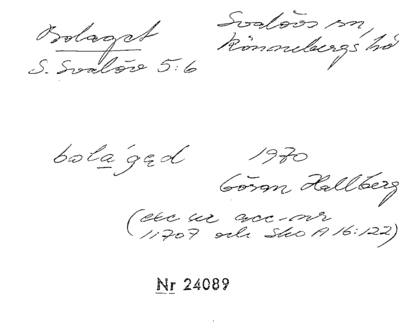 Bolaget
Svalövs sn,
S. Svalöv 5:6
Rönnebergs hd
bolá̱gęd
1970
Göran Hallberg
(exc ur acc-nr
11707 och Sko A 16:122)
Nr 24089